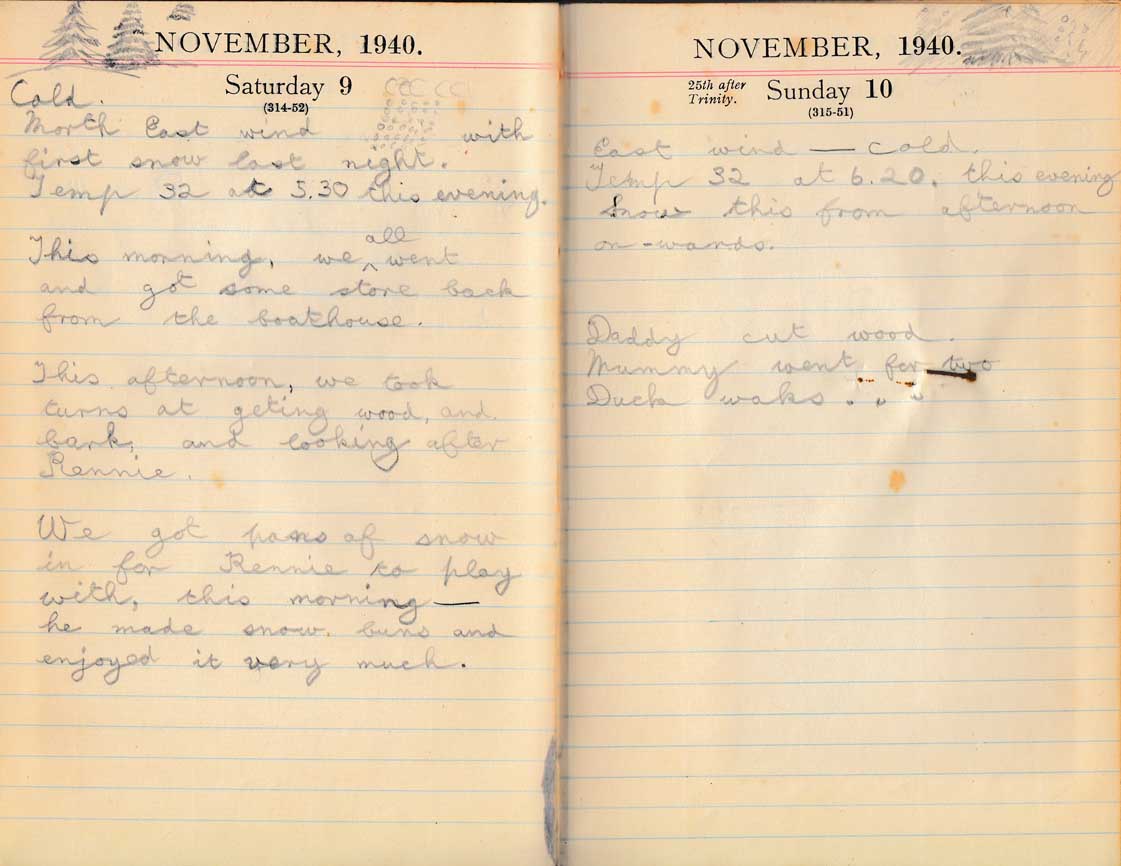 NOVEMBER, 1940.
Saturday 9
(314-52)
Cold.
North East wind with
first snow last night.
Temp 32 at 5.30 this evening.
This morning, we all went
and got some store back
from the boathouse.
This afternoon, we took
turns at geting wood, and
bark, and looking after
Rennie.
We got pans of snow
in for Rennie to play
with, this morning —
he made snow buns and
enjoyed it very much.
NOVEMBER, 1940.
25th after
Trinity.
Sunday 10
(315-51)
East wind — cold.
Temp 32 at 6.20. this evening
Snow this from afternoon
on-wards.
Daddy cut wood.
Mummy went for two
Duck waks . „ „